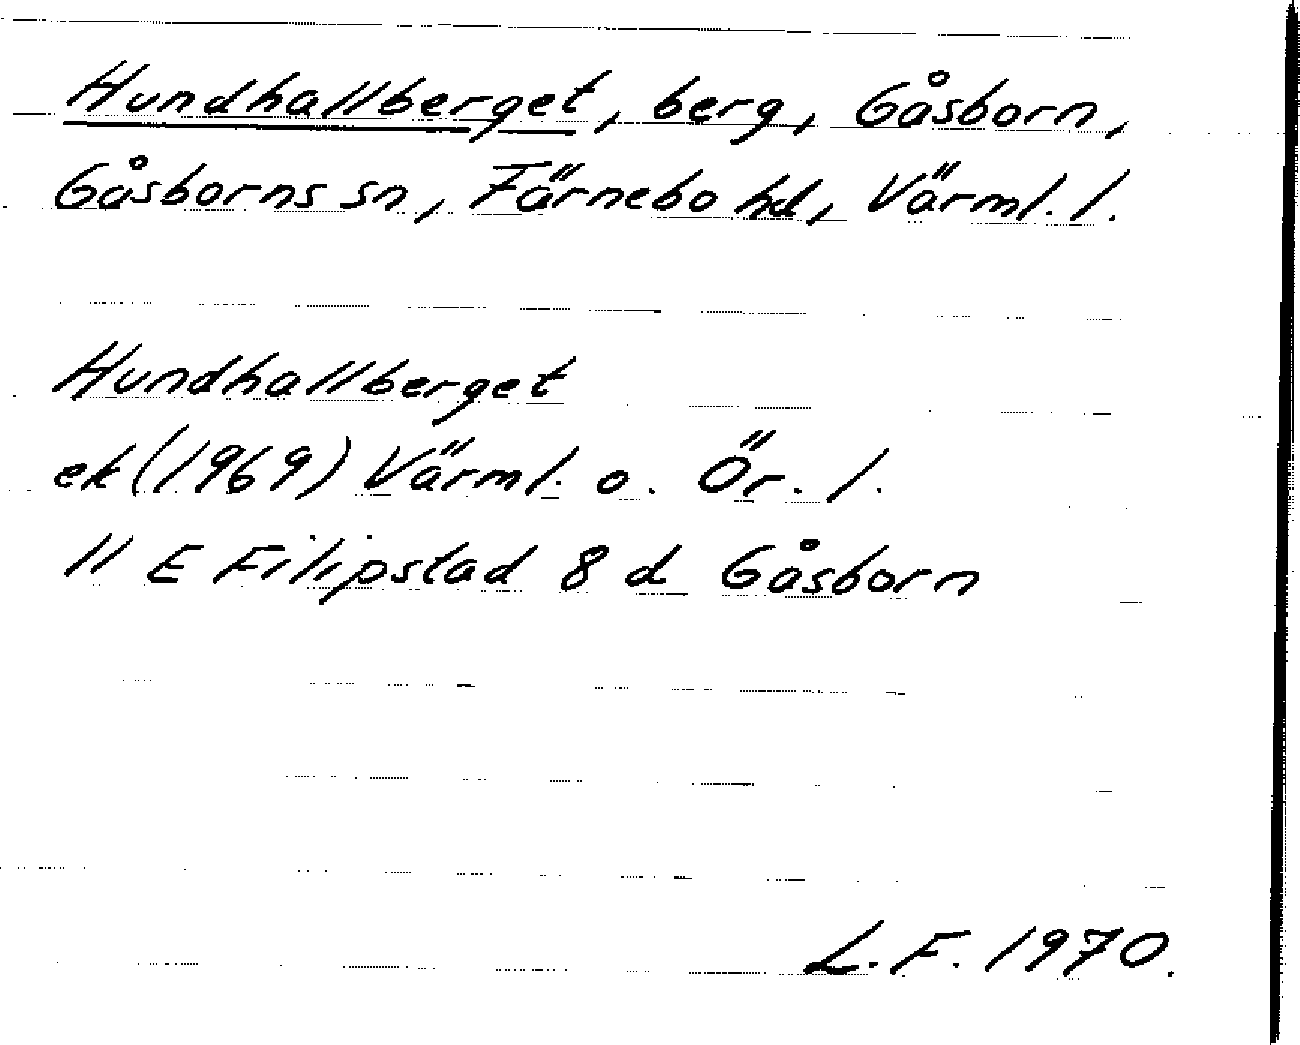 Hundhallberget, berg, Gåsborn,
Gåsborns sn, Färnebo hd, Värml. l.
Hundhallberget
ek (1969) Värml. o. Ör. l.
11 E Filipstad 8 d Gåsborn
L.F. 1970.